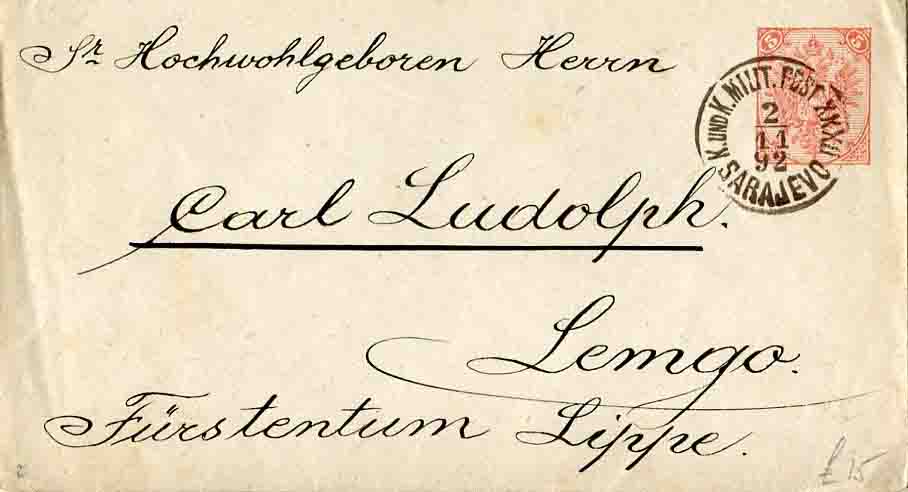 Sr Hochwohlgeboren Herrn
5 5
K. UND K. MILIT. POST XXXII.
2
11
92
SARAJEVO
Carl Ludolph.
Lemgo.
Fürstentum Lippe.
£ 15